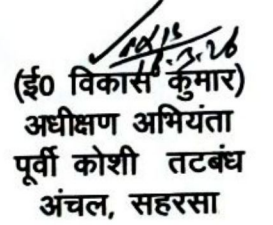 (ई० विकास कुमार)
अधीक्षण अभियंता
पूर्वी कोशी तटबंध
अंचल, सहरसा